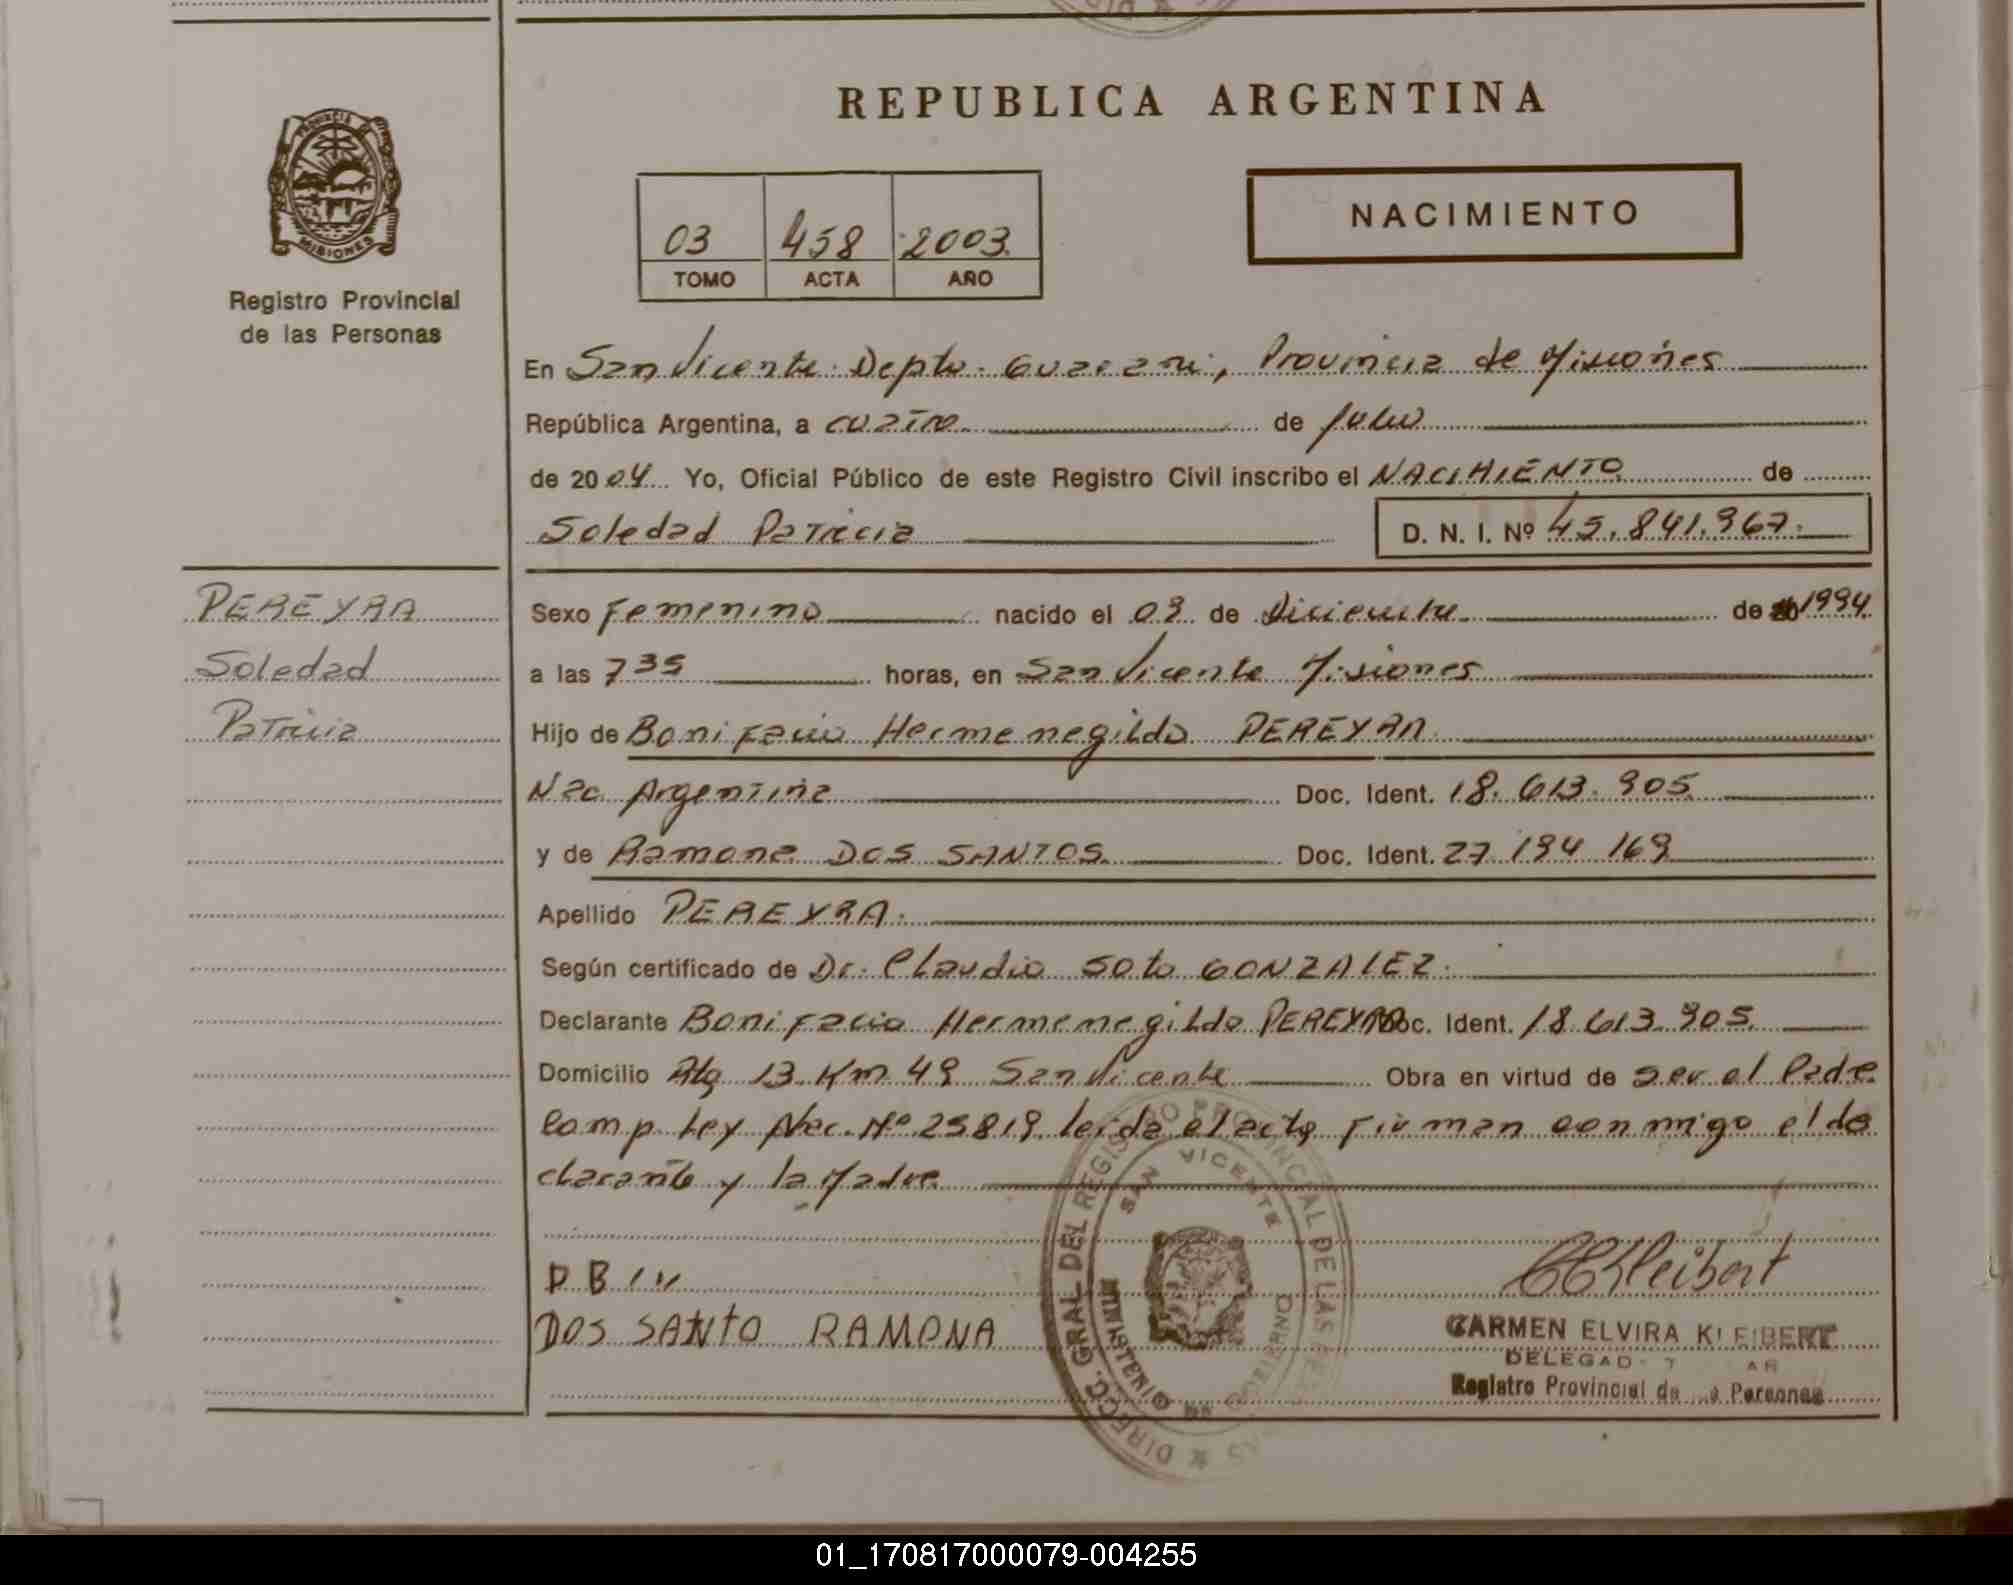 REPUBLICA ARGENTINA
PROVINCIA DE
MISIONES
Registro Provincial
de las Personas
03 458 2003.
TOMO ACTA AÑO
NACIMIENTO
En San Vicente Depto. Guarani, Provincia de Misiones
República Argentina, a cuatro de Julio
de 2004 Yo, Oficial Público de este Registro Civil inscribo el NACIMIENTO de
Soledad Patricia D. N. I. Nº 45.841.967.
PEREYRA
Soledad
Patricia
Sexo Femenino nacido el 09 de Diciembre de 1994
a las 7 35 horas, en San Vicente Misiones
Hijo de Bonifacio Hermenegildo PEREYRA
Nac. Argentina Doc. Ident. 18.613.905
y de Ramona DOS SANTOS Doc. Ident. 27 194 169
Apellido PEREYRA.
Según certificado de Dr. Claudio Soto GONZALEZ.
Declarante Bonifacio Hermenegildo PEREYRA Doc. Ident. 18.613.905
Domicilio Rta 13 Km 49 San Vicente Obra en virtud de ser el Padre
Comp. Ley Nac. Nº 25819 leida el acta Firman conmigo el de
clarante y la Madre
P B
DOS SANTO RAMONA
DIRECC. GRAL. DEL REGISTRO PROVINCIAL DE LAS PERSONAS
SAN VICENTE
MINISTERIO DE GOBIERNO
CKleibert
CARMEN ELVIRA KLEIBERT
DELEGAD
Registro Provincial de Personas
01_170817000079-004255